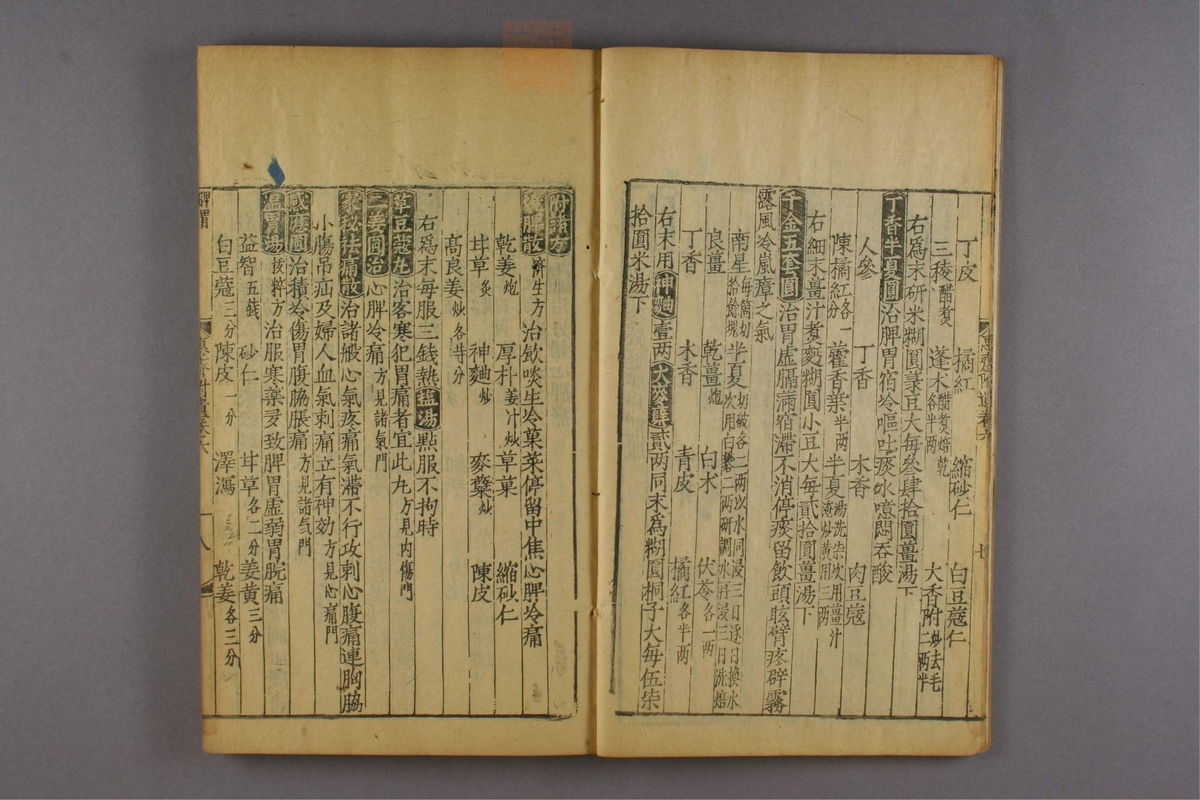 丁皮 橘紅 縮砂仁 白豆蔻仁
三稜醋煑 蓬术醋煑焙乾各半两 大香附炒去毛二两半
右爲末研米糊圓菉豆大每叄肆拾圓薑湯下
丁香半夏圓治脾胃宿冷嘔吐痰水噫悶吞酸
人參 丁香 木香 肉豆蔻
陳橘紅各一分 藿香葉半两 半夏湯洗柒次用薑汁淹炒黄用三两
右細末薑汁煑麪糊圓小豆大每貳拾圓薑湯下
千金五套圓治胃虚膈滿宿滯不消停痰留飲頭眩臂疼辟霧
露風冷嵐瘴之氣
南星每箇切拾餘塊 半夏切破各二两以水同浸三日逐日换水次用白礬二两研調水再浸三日洗焙
良薑 乾薑炮 白术 茯苓各一两
丁香 木香 青皮 橘紅各半两
右末用神麯壹两大麥糵貳两同末爲糊圓桐子大每伍柒
拾圓米湯下
附諸方
脾散濟生方治飲啖生冷菓菜停留中焦心脾冷痛
乾姜炮 厚朴姜汁炒 草菓 縮砂仁
甘草炙 神麯炒 麥糵炒 陳皮
高良姜炒各等分
右爲末每服三錢熱鹽湯點服不拘時
草豆蔻丸治客寒犯胃痛者宜此丸方見内傷門
二姜圓治心脾冷痛方見諸氣門
家秘祛痛散治諸般心氣疼痛氣滯不行攻刺心腹痛連胸脇
小腸吊疝及婦人血氣刺痛立有神効方見心痛門
感應圓治積冷傷胃腹脇脹痛方見諸气門
温胃湯拔粹方治服寒藥多致脾胃虚弱胃脘痛
益智五錢 砂仁 甘草各二分 姜黄三分
白豆蔻三分 陳皮一分 澤瀉 乾姜各三分
脾胃